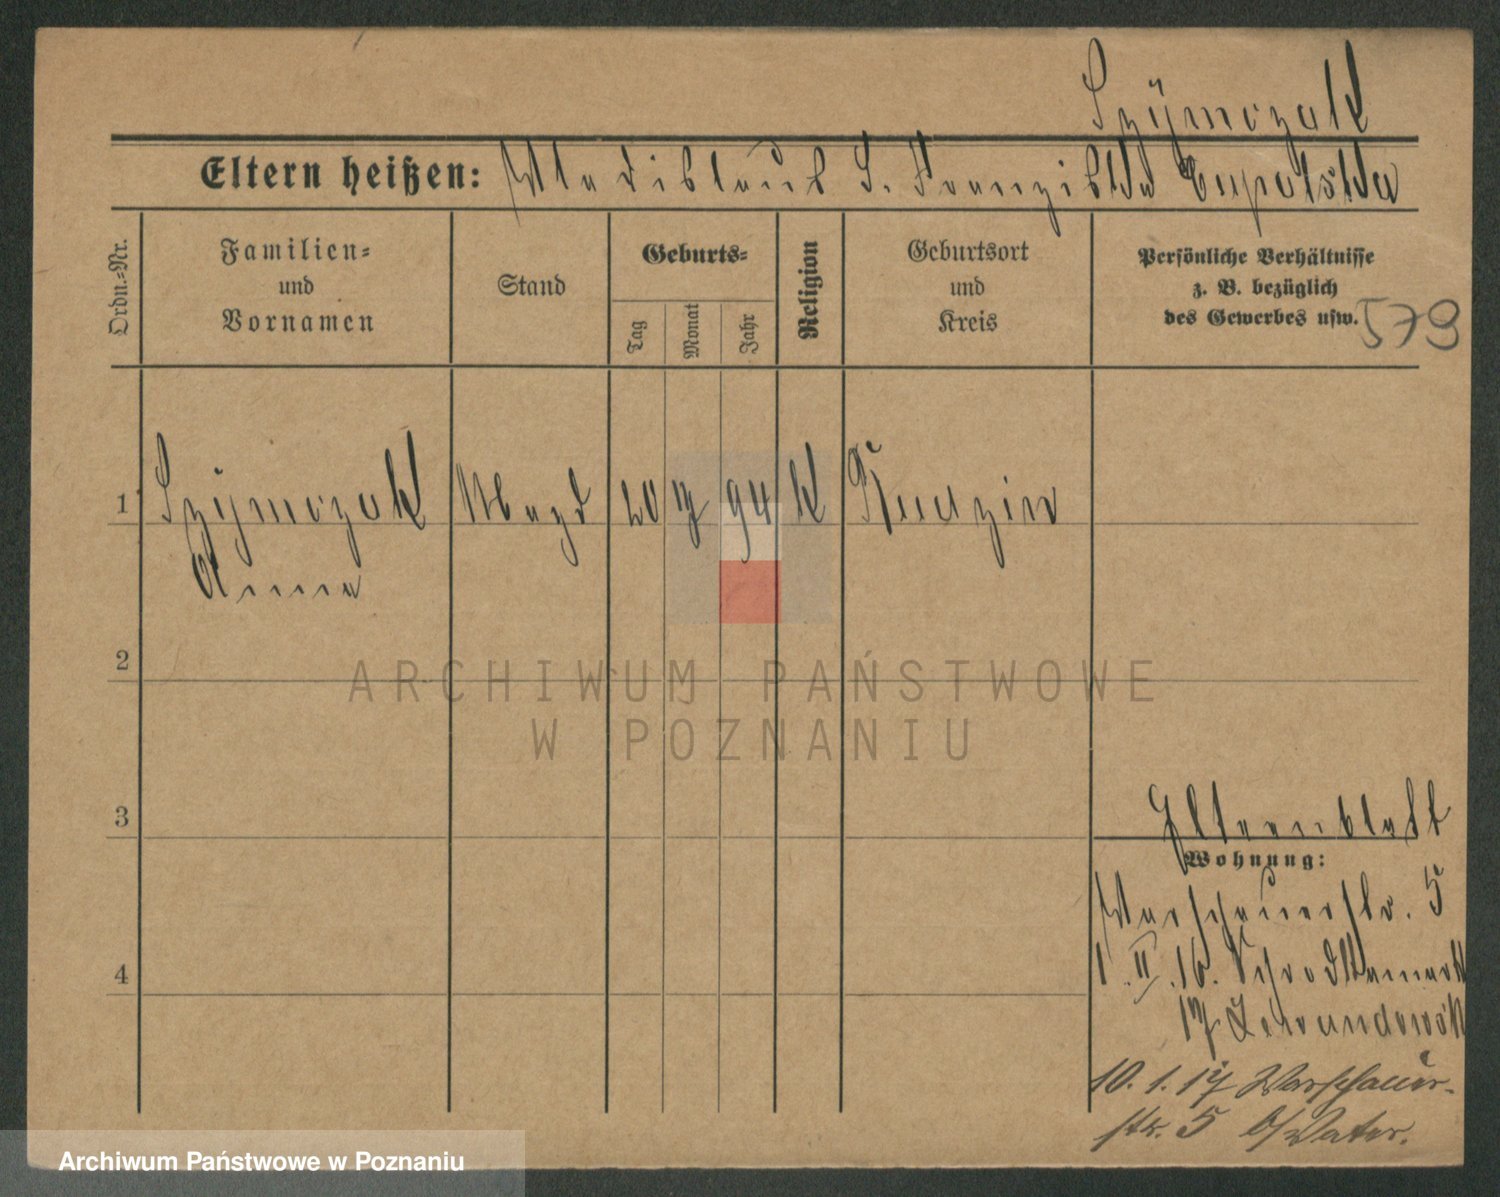 Szÿmczak
Eltern heißen: Wladislaus S. Franziska
Ordn.-Nr.
Familien-
und
Vornamen
Stand
Geburts-
Tag
Monat
Jahr
Religion
Geburtsort
und
Kreis
Persönliche Verhältnisse
z. B. bezüglich
des Gewerbes usw.
579
1 Szÿmczak Magd 20 7 94 K
Anna
2
3
4
Elternblatt
Wohnung:
Warschauerstr. 5
1.II.16. Schrodkamarkt
17 Lewandowsk
10.1.17 Warschauer-
str. 5 b/Vater.
ARCHIWUM PAŃSTWOWE
W POZNANIU
Archiwum Państwowe w Poznaniu